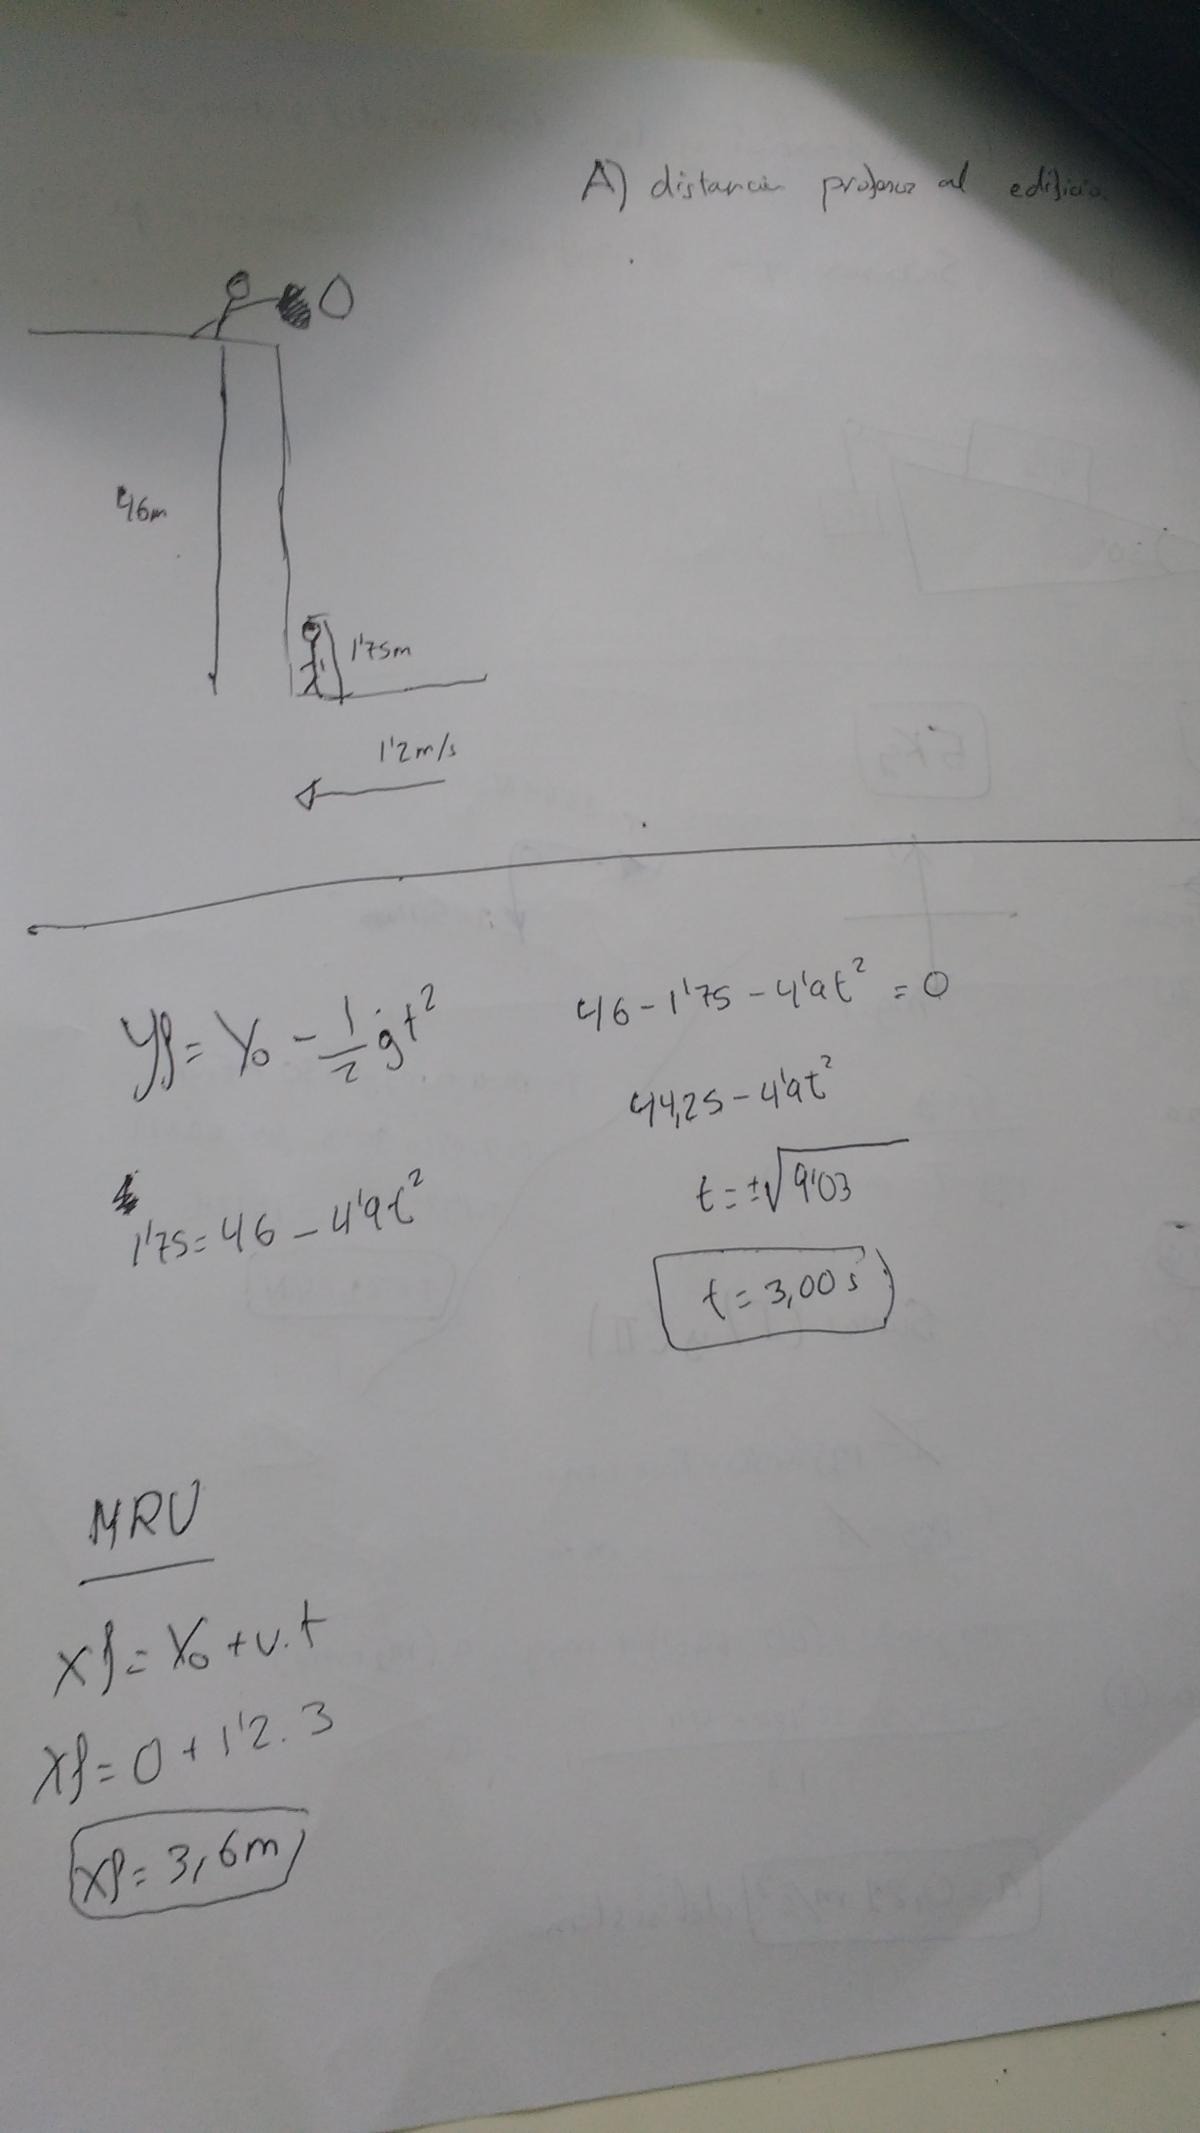 A) distancia profesor al edificio
46m
1'75m
1'2m/s
yf = y₀ - 1/2 gt²
1'75 = 46 - 4'9t²
46 - 1'75 - 4'9t² = 0
44,25 - 4'9t²
t = ±√9'03
t = 3,00 s
MRU
xf = x₀ + v.t
xf = 0 + 1'2 . 3
xf = 3,6m